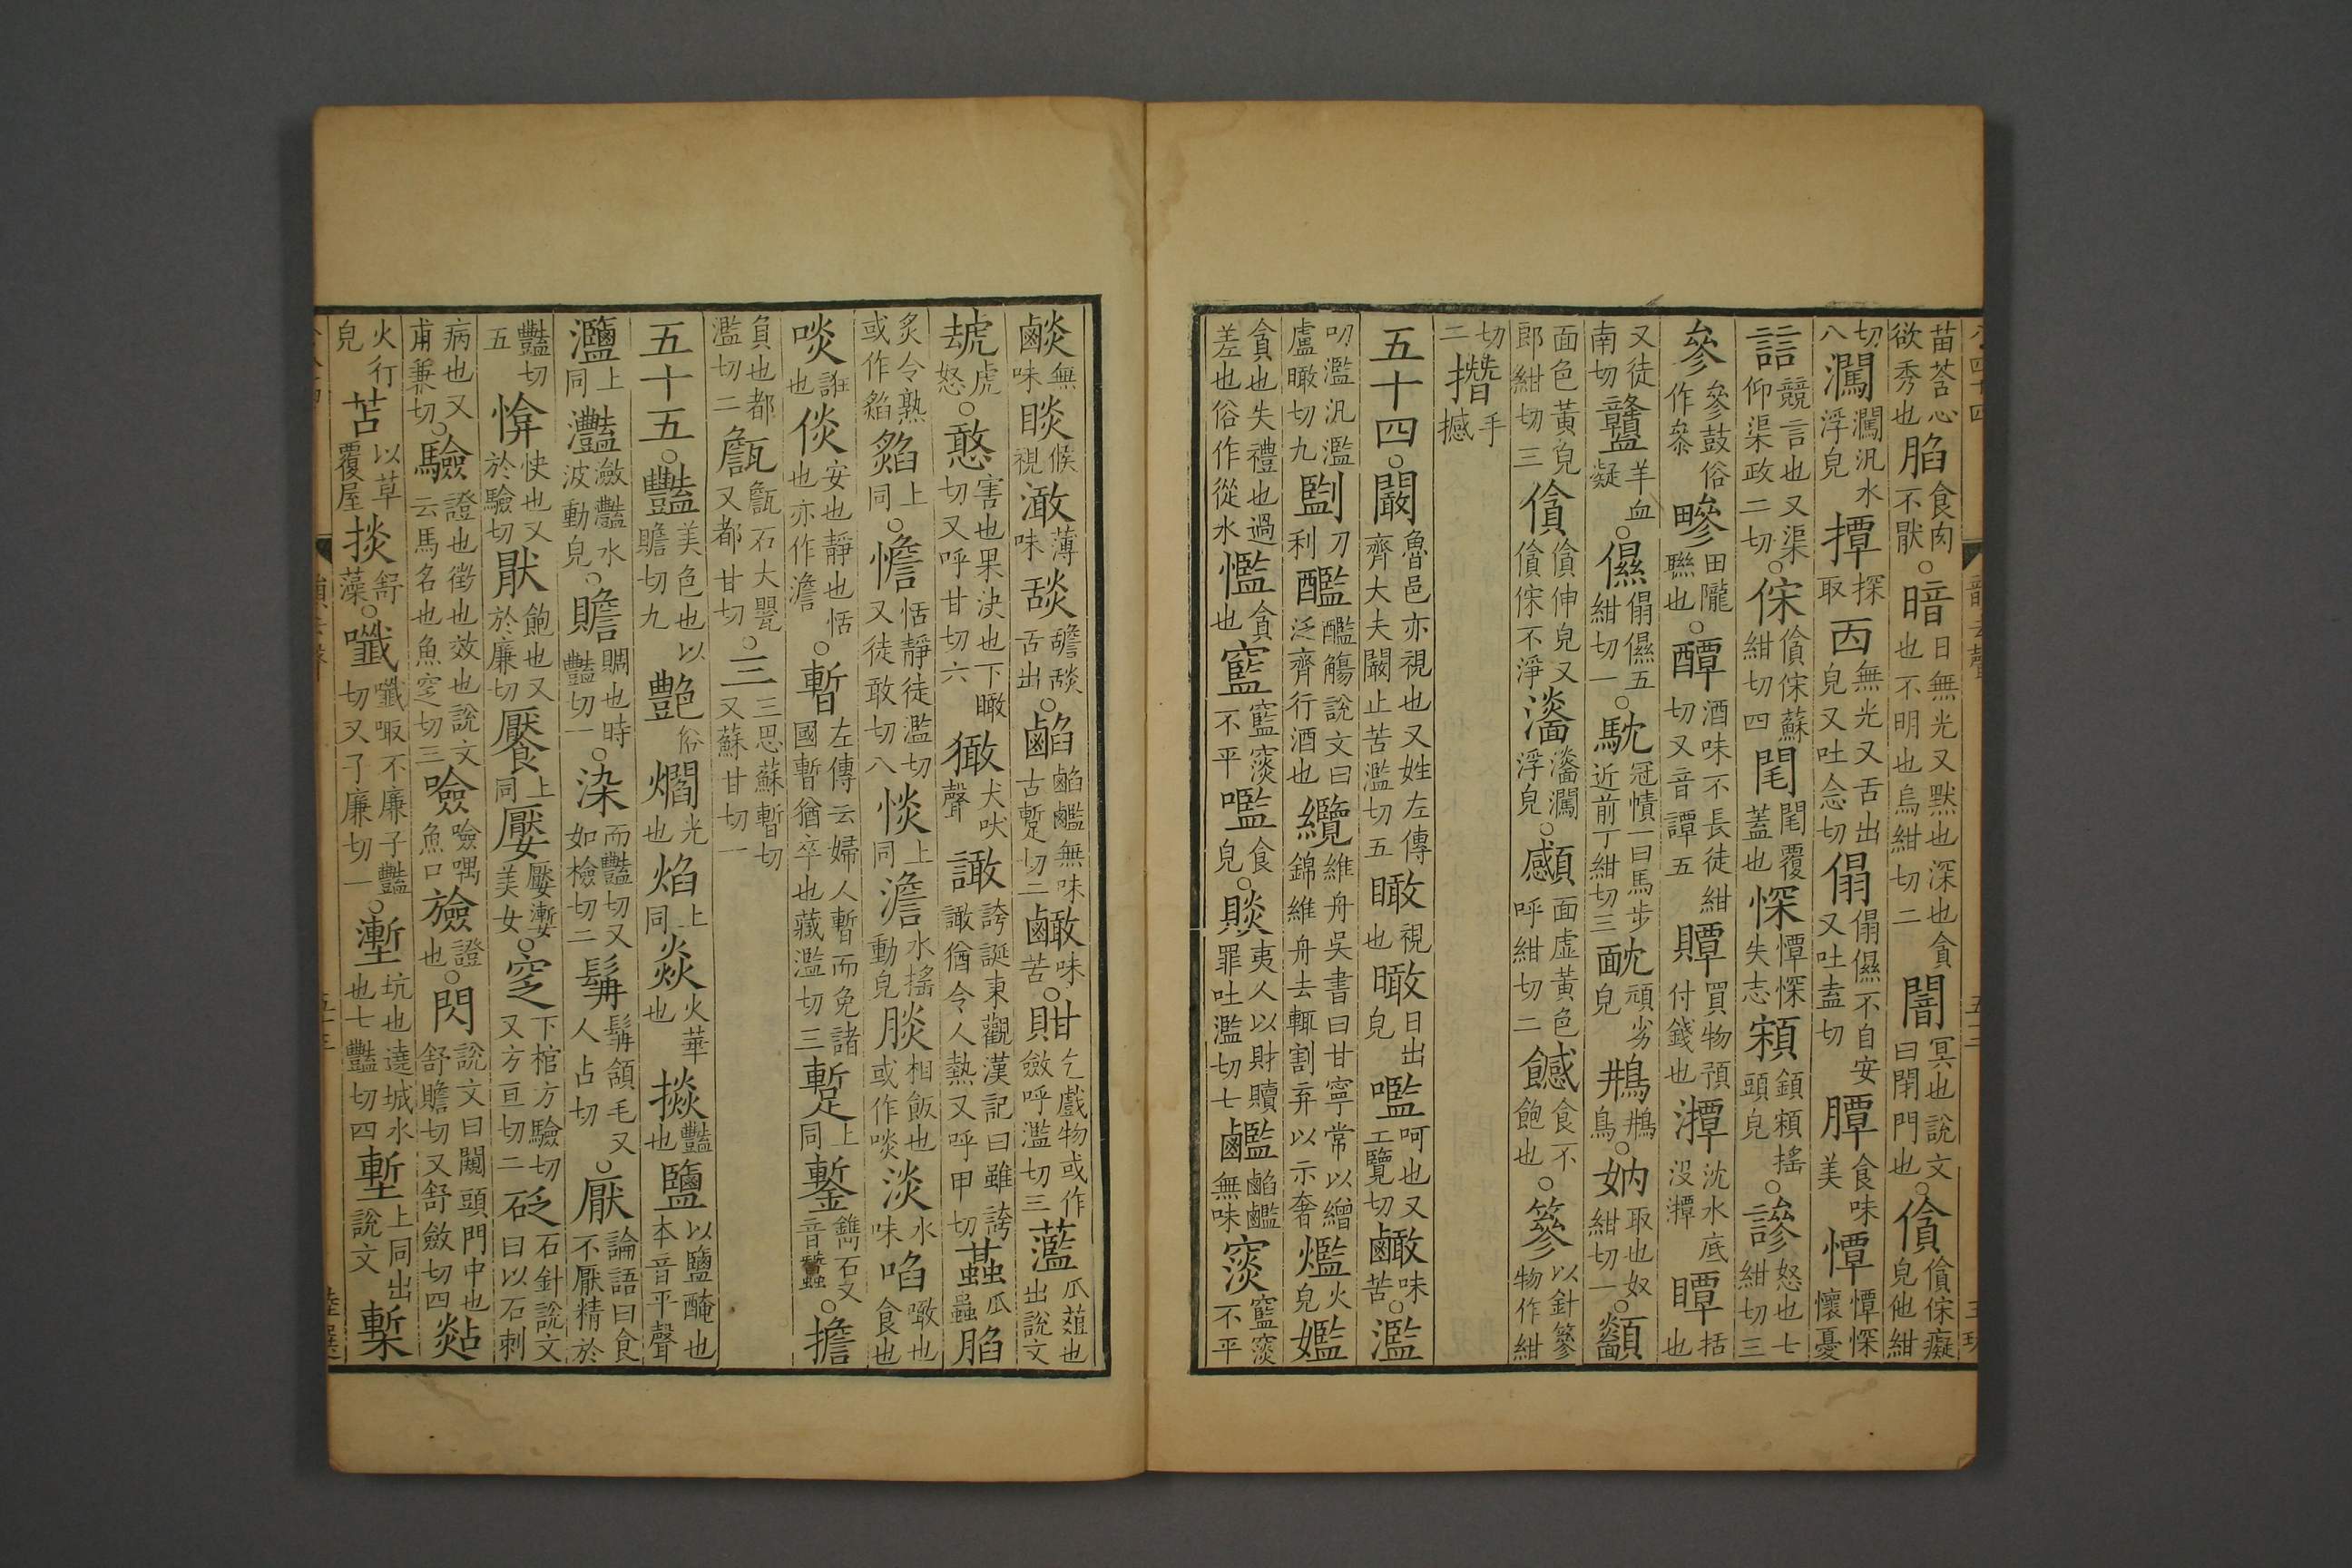 苗荅心欲秀也䐄食肉不猒○暗日無光又默也深也貪也不明也烏紺切二闇冥也說文曰閉門也○僋僋俕癡皃他紺
切八㵅㵅汎水浮皃撢探取㐁無光又舌出皃又吐念切傝傝儑不自安又吐盍切䐺食味美憛憛悇懷憂
誩競言也又渠仰渠政二切○俕僋俕蘇紺切四毷毷覆蓋也憛悇失志顉顉頦搖頭皃○謲怒也七紺切三
參參鼓俗作叅䅟田隴䫲也○醰酒味不長徒紺切又音譚五贉買物預付錢也潭沈水底沒潭瞫括也
又徒南切䶫羊血凝○儑傝儑五紺切一○馾冠幘近前一曰馬步丁紺切三䩈頑劣皃鴂鴂鳥○妠取也奴紺切一○顲
面色黃皃郎紺切三僋僋伸皃又僋俕不淨灨灨㵅浮皃○顑面虛黃色呼紺切二䫲食不飽也○篸以針篸物作紺
切二撍手撼
五十四○闞魯邑亦視也又姓左傳齊大夫闞止苦濫切五瞰視也㬚日出皃㘕呵也又工覽切䶢味苦○濫
叨濫汎濫盧瞰切九㔋刀利醶醶觴說文曰泛齊行酒也纜維舟吳書曰甘寧常以繒錦維舟去輒割弃以示奢爁火皃嚂
貪也失禮也過差也俗作從水㜮貪也㝹㝹㴸不平嚂食皃○賧夷人以財贖罪吐濫切七䶢䶢䶢無味㴸㝹㴸不平
䶢無味睒候視澉薄味舕䑙舕舌出○䶢䶢䶢無味古蹔切二䶢味苦○㽏乞戲物或作歛呼濫切三蘫瓜葅也出說文
㺖虎怒○憨害也果決也下瞰切又呼甘切六㺖犬吠聲譀誇誕東觀漢記曰雖誇譀猶令人熱又呼甲切䘓瓜蟲䐄
炙令熟或作焰㷔上同○憺恬靜徒濫切又徒敢切八惔上同澹水搖動皃腅相飯也或作啖淡水味啗噉也食也
啖誑也倓安也靜也恬也亦作澹○暫左傳云婦人暫而免諸國暫猶卒也藏濫切三蹔上同鏨鐫石又音蠶○擔
負也都濫切二甔甔石大甖又都甘切○三三思蘇暫切又蘇甘切一
五十五○豔美色也以贍切九艶俗爓光也焰上同焱火華也掞豔也鹽以鹽醃也本音平聲
灩上同灔瀲灩水波動皃○贍賙也時豔切一○染而豔切又如檢切二䫇髥頷毛又人占切○厭論語曰食不厭精於
豔切五㤿快也又於驗切猒飽也又於廉切饜上同嬮嬮㜞美女○窆下棺方驗切又方亘切二砭石針說文曰以石刺
病也又甫𠔥切○驗證也徵也效也說文云馬名也魚窆切三噞噞喁魚口譣證也○閃說文曰闚頭門中也舒贍切又舒斂切四煔
火行皃苫以草覆屋掞舒藻○㦰㦰㖩不廉子豔切又子廉切一○塹坑也遶城水也七豔切四壍上同出說文槧